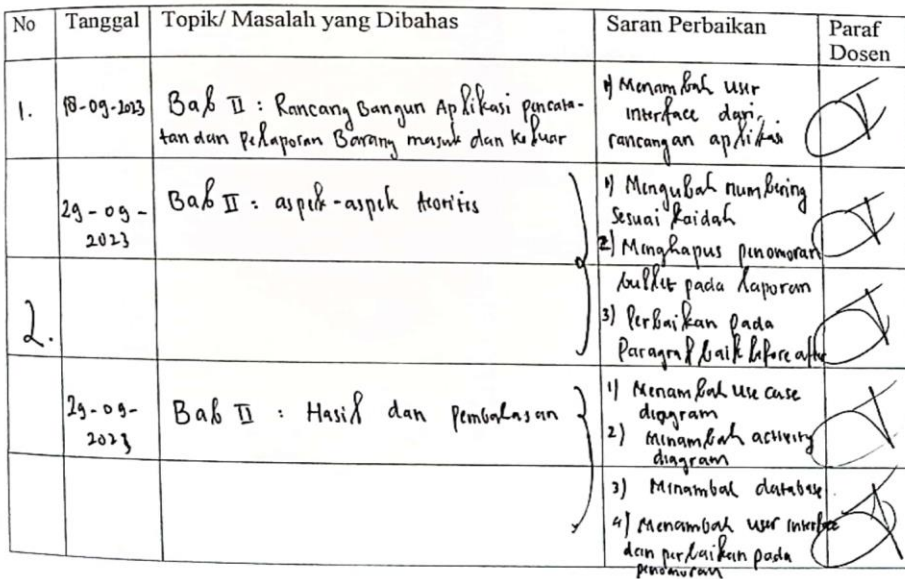 No Tanggal Topik/ Masalah yang Dibahas Saran Perbaikan Paraf
Dosen
1. 18-09-2023 Bab II : Rancang Bangun Aplikasi pencata-
tan dan Pelaporan Barang masuk dan Keluar
1) Menambah user
interface dari
rancangan aplikasi
29-09-
2023
Bab II : aspek-aspek teoritis
1) Mengubah numbering
Sesuai kaidah
2) Menghapus penomoran
bullet pada laporan
2.
3) Perbaikan pada
Paragraf baik before after
29-09-
2023
Bab II : Hasil dan Pembahasan
1) Menambah use case
diagram
2) Menambah activity
diagram
3) Menambah database
4) Menambah user interface
dan perbaikan pada
penomoran